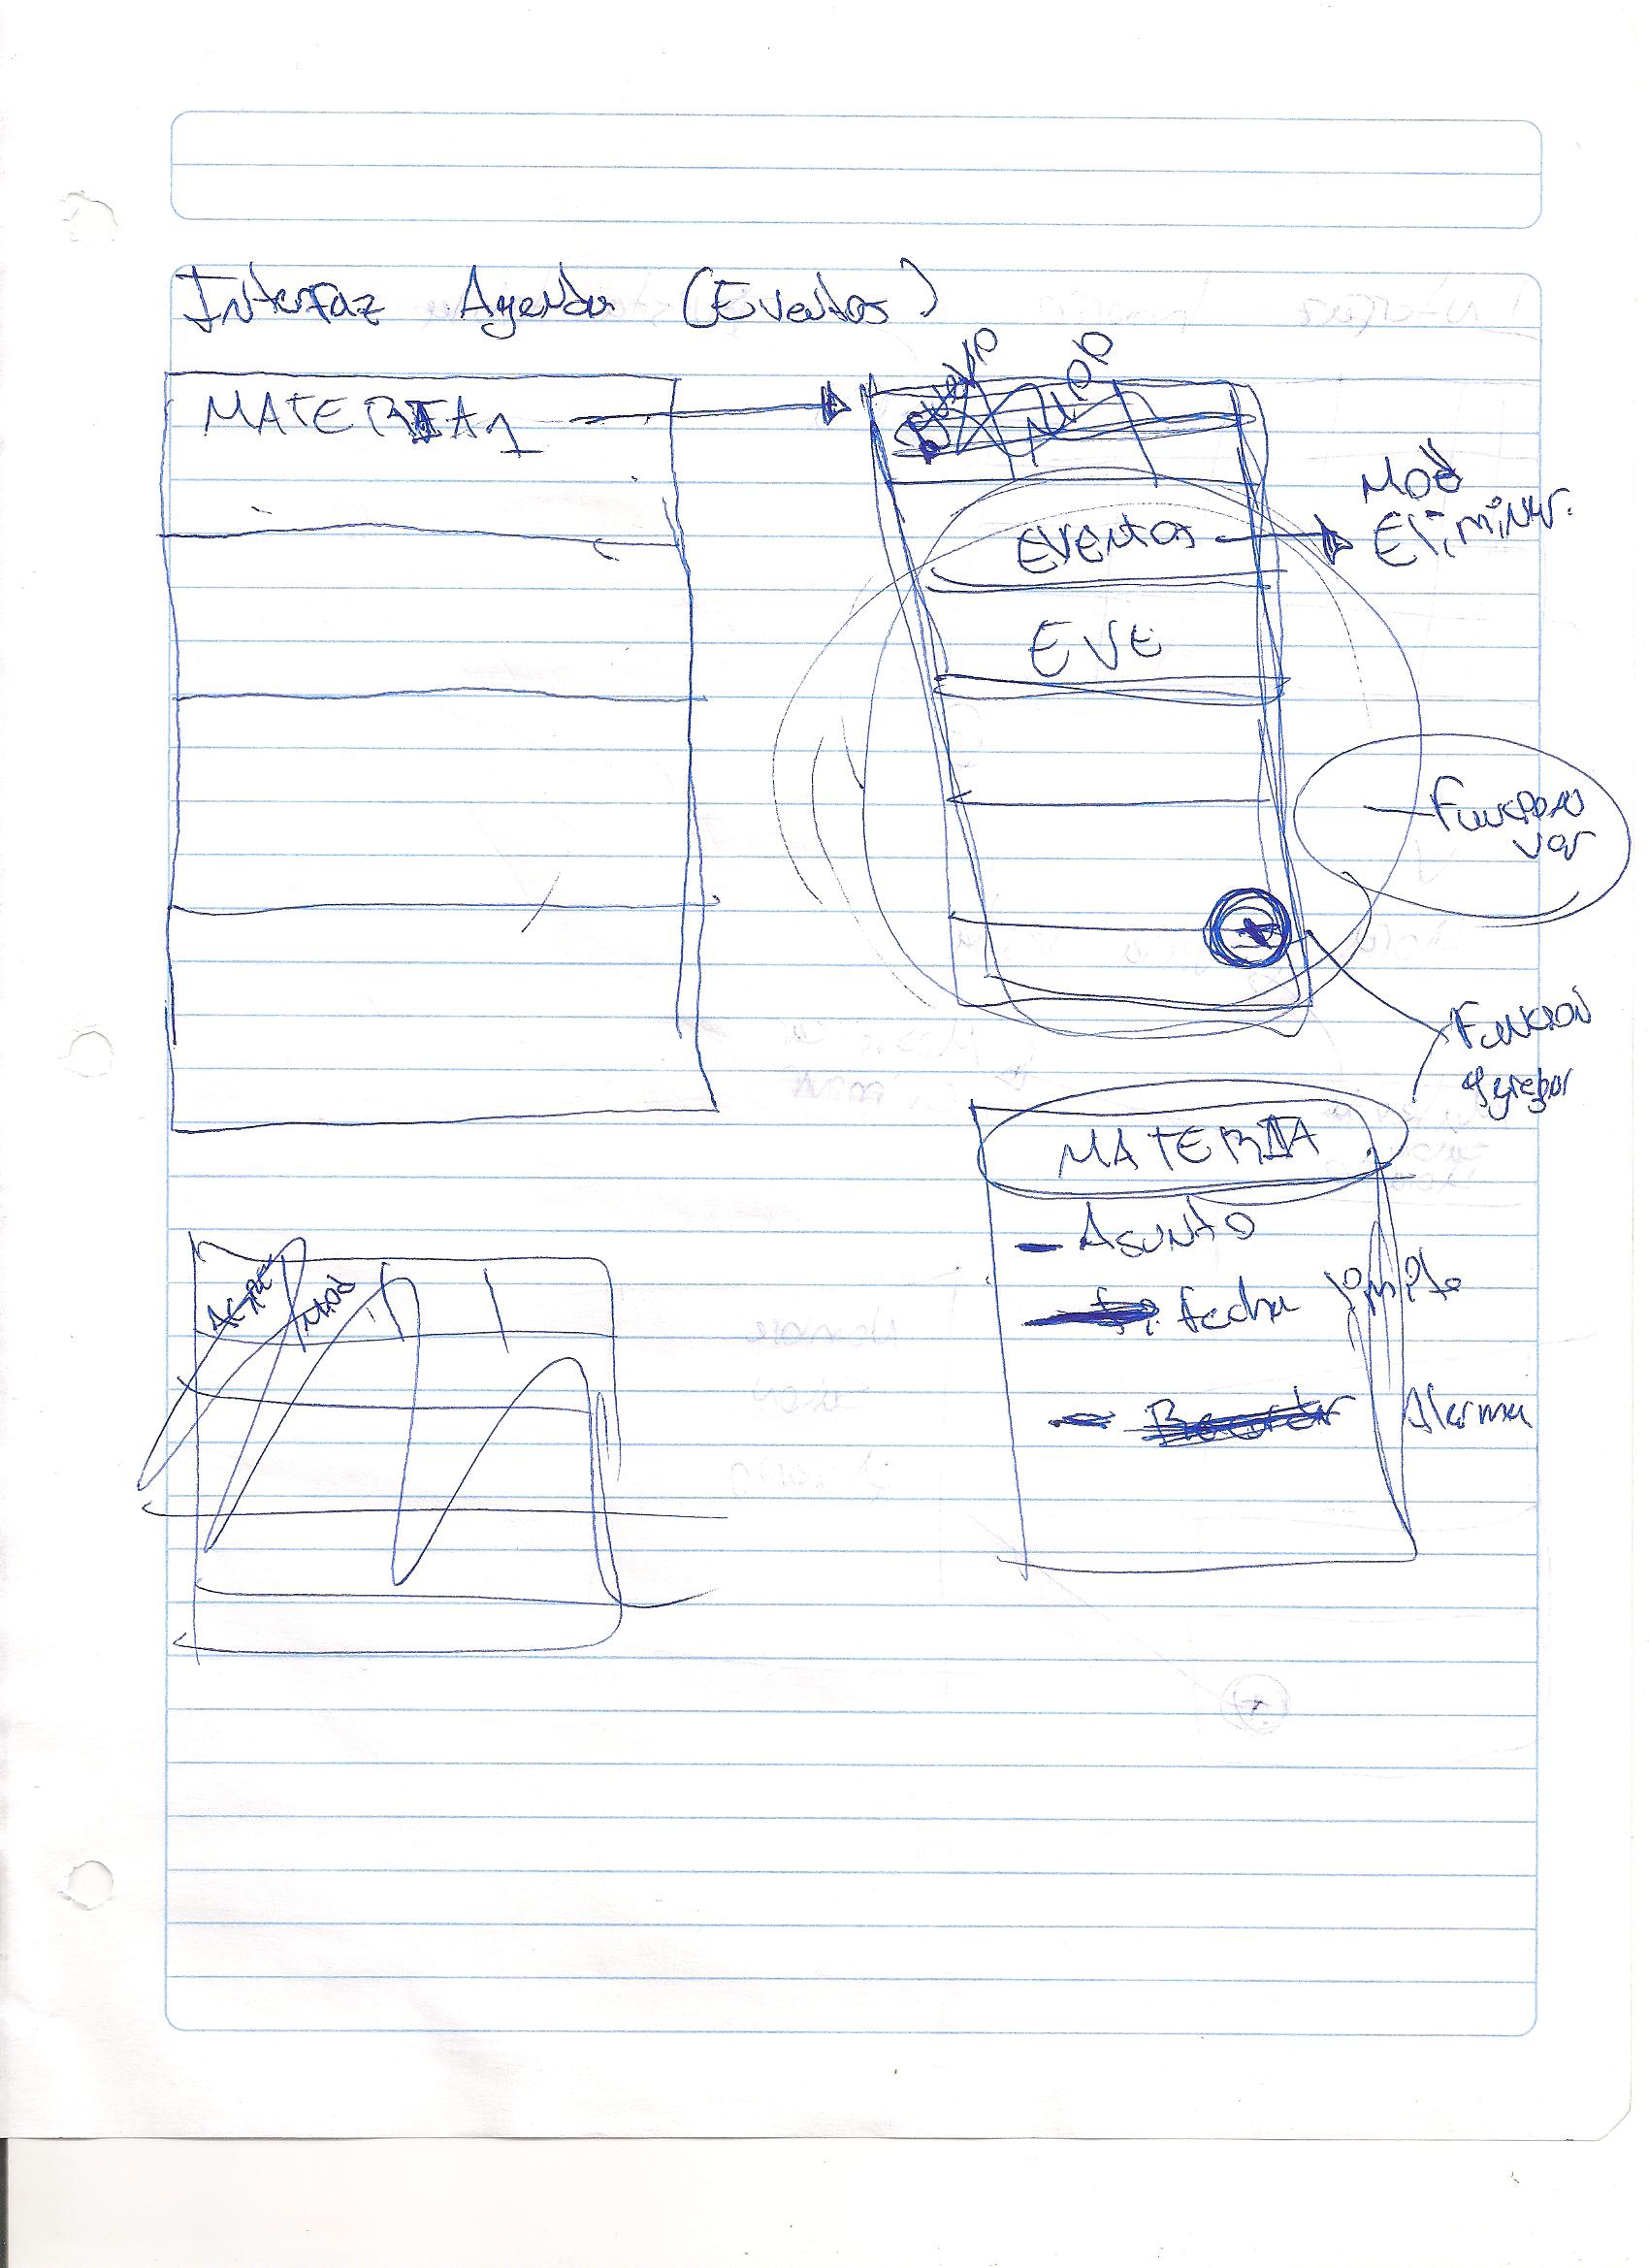 Interfaz Agenda (Eventos)
MATERIA 1
Eventos
Mod
Eliminar.
EVE
Funcion
ver
+
Funcion
agregar
MATERIA
- Asunto
fecha limite
- Alarma
Mod